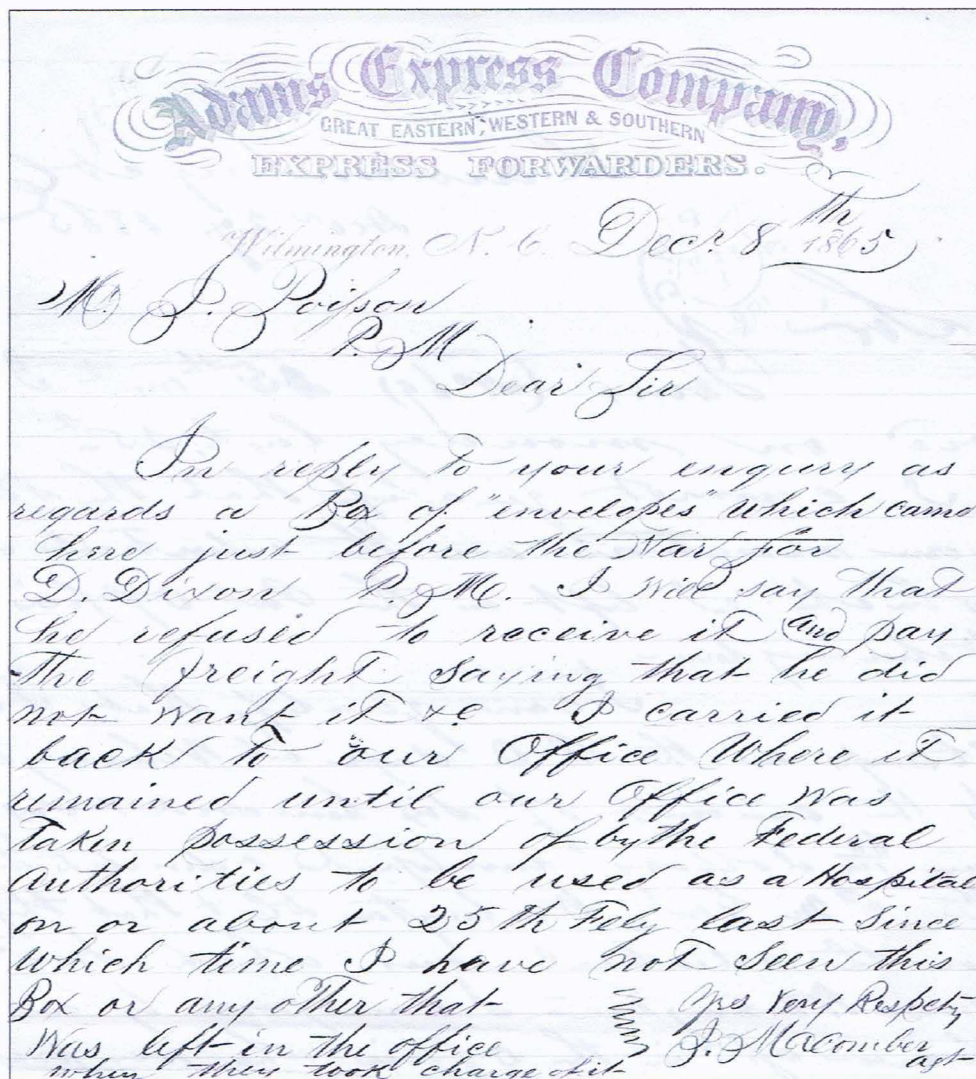 Adams Express Company,
GREAT EASTERN, WESTERN & SOUTHERN
EXPRESS FORWARDERS.
Wilmington, N. C. Decr. 8th 1865
M. J. Poisson
P. M
Dear Sir
In reply to your enquiry as
regards a Box of "envelopes" which came
here just before the War for
D. Dixon P. M. I will say that
he refused to receive it and pay
the freight saying that he did
not want it &c I carried it
back to our Office Where it
remained until our Office was
Taken possession of by the Federal
Authorities to be used as a Hospital
on or about 25th Feby last Since
which time I have not Seen this
Box or any other that
Was left in the office
when they took charge of it
Yrs Very Respcty
J. Macomber
agt